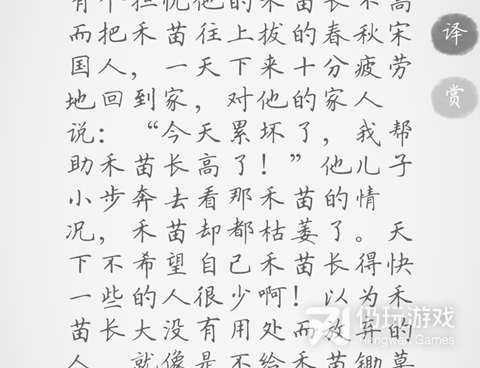 有个担忧他的禾苗长不高
而把禾苗往上拔的春秋宋
国人，一天下来十分疲劳
地回到家，对他的家人
说：“今天累坏了，我帮
助禾苗长高了！”他儿子
小步奔去看那禾苗的情
况，禾苗却都枯萎了。天
下不希望自己禾苗长得快
一些的人很少啊！以为禾
苗长大没有用处而放弃的
人，就像是不给禾苗锄草
译
赏
仍玩游戏
Rengwan Games